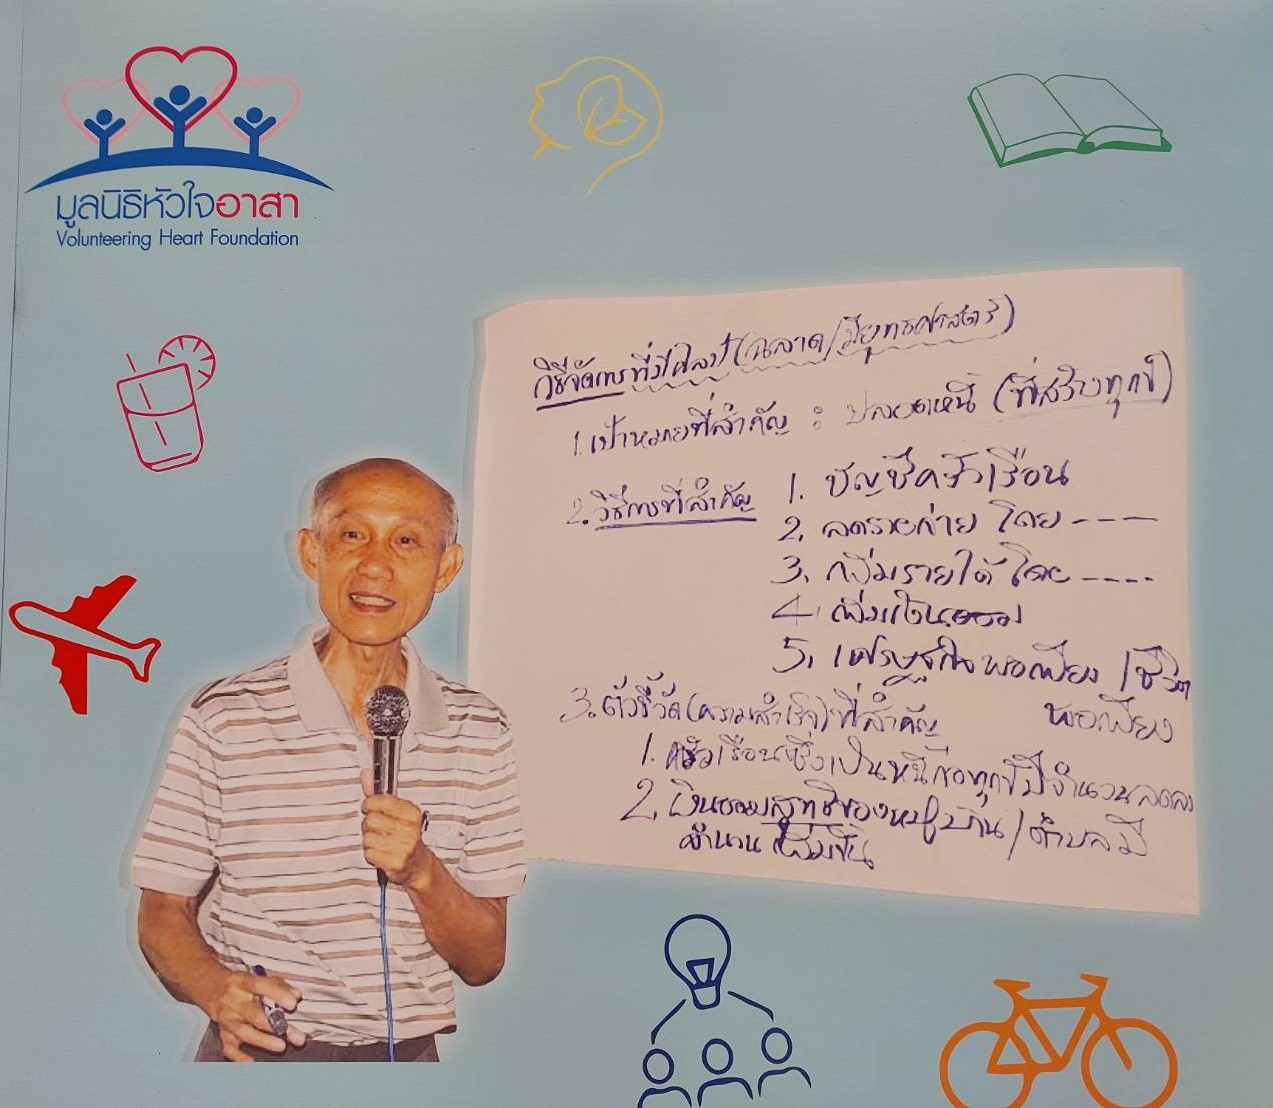 มูลนิธิหัวใจอาสา
Volunteering Heart Foundation
วิธีจัดการที่มีศิลป์ (ฉลาด/มียุทธศาสตร์)
1. เป้าหมายที่สำคัญ : ปลอดหนี้ (ที่สร้างทุกข์)
2. วิธีการที่สำคัญ
1. บัญชีครัวเรือน
2. ลดรายจ่าย โดย ----
3. เพิ่มรายได้ โดย ----
4. เพิ่มเงินออม
5. เศรษฐกิจพอเพียง / ชีวิต
พอเพียง
3. ตัวชี้วัด (ความสำเร็จ) ที่สำคัญ
1. ครัวเรือนซึ่งเป็นหนี้ก่อทุกข์มีจำนวนลดลง
2. เงินออมสุทธิของหมู่บ้าน / ตำบลมี
จำนวนเพิ่มขึ้น